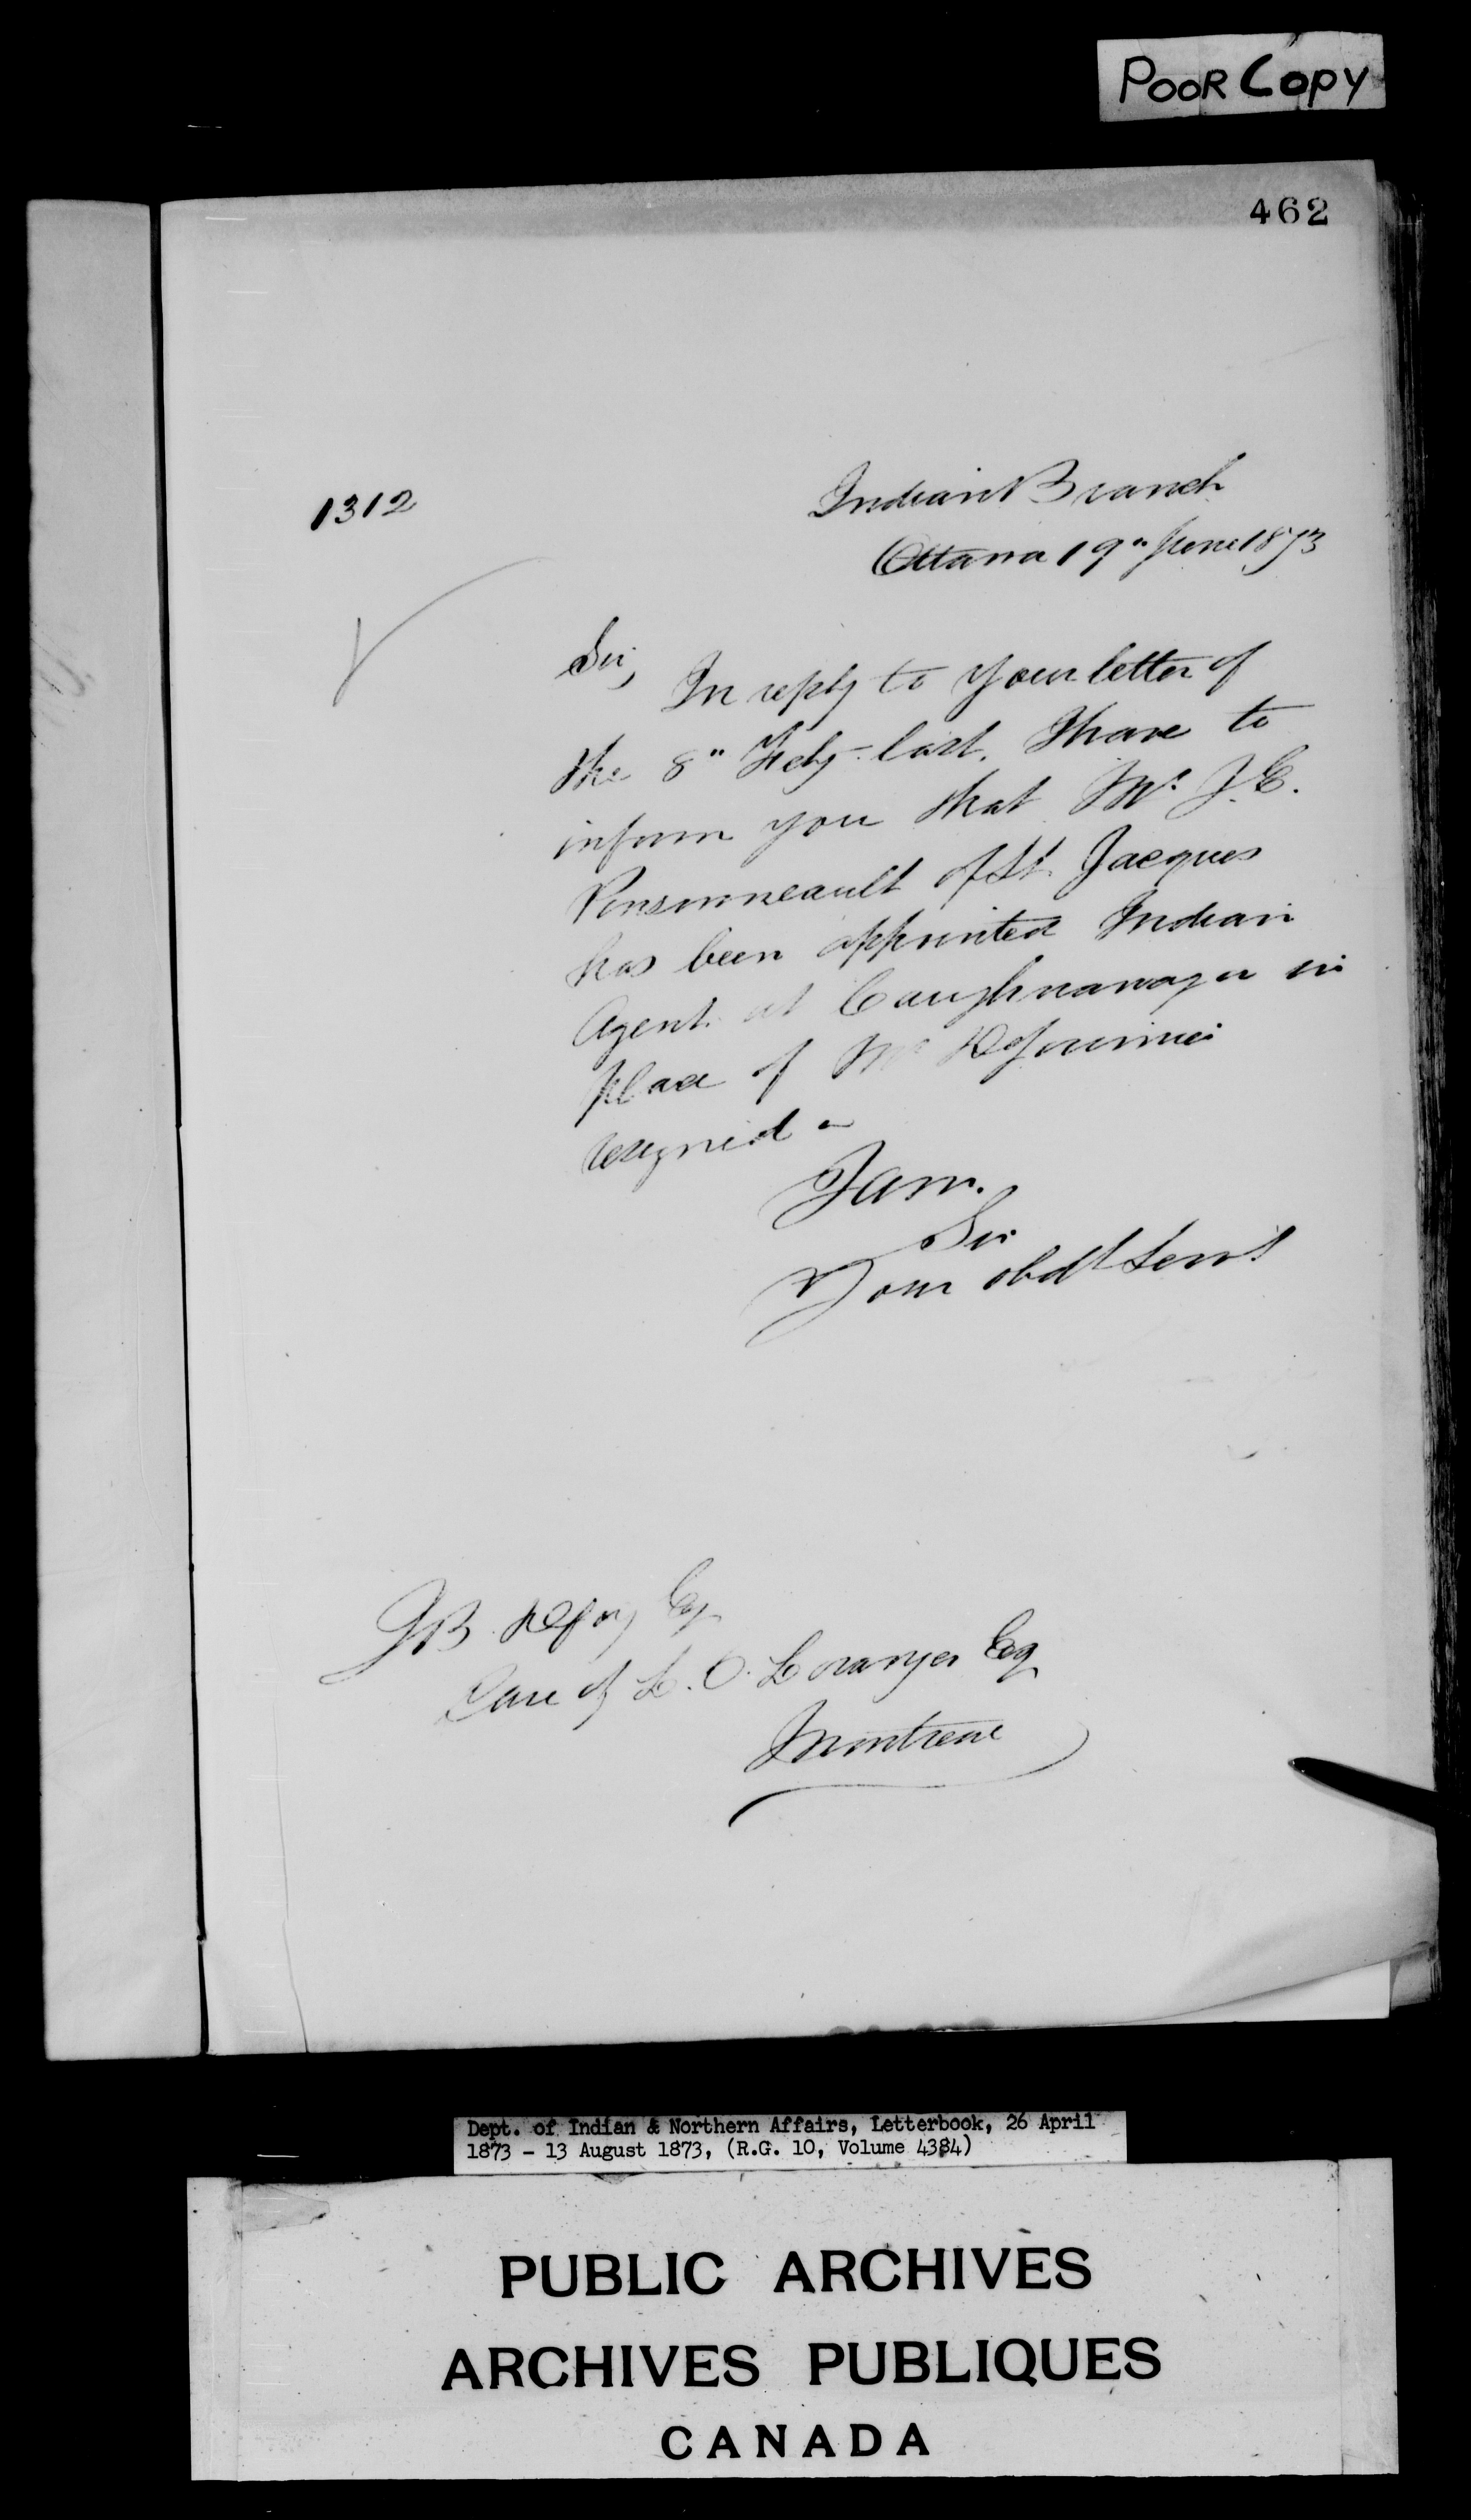 POOR COPY
462
1312
Indian Branch
Ottawa 19" June 1873
Sir,
In reply to your letter of
the 8" Feby last. I have to
inform you that Mr J.E.
Pinsonneault of St. Jacques
has been appointed Indian
Agent at Caughnawaga in
place of Mr
resigned
I am.
Sir
Your obdt Servt
J B Esq
Care of L. O. Loranger Esq
Montreal
Dept. of Indian & Northern Affairs, Letterbook, 26 April
1873 - 13 August 1873, (R.G. 10, Volume 4384)
PUBLIC ARCHIVES
ARCHIVES PUBLIQUES
CANADA